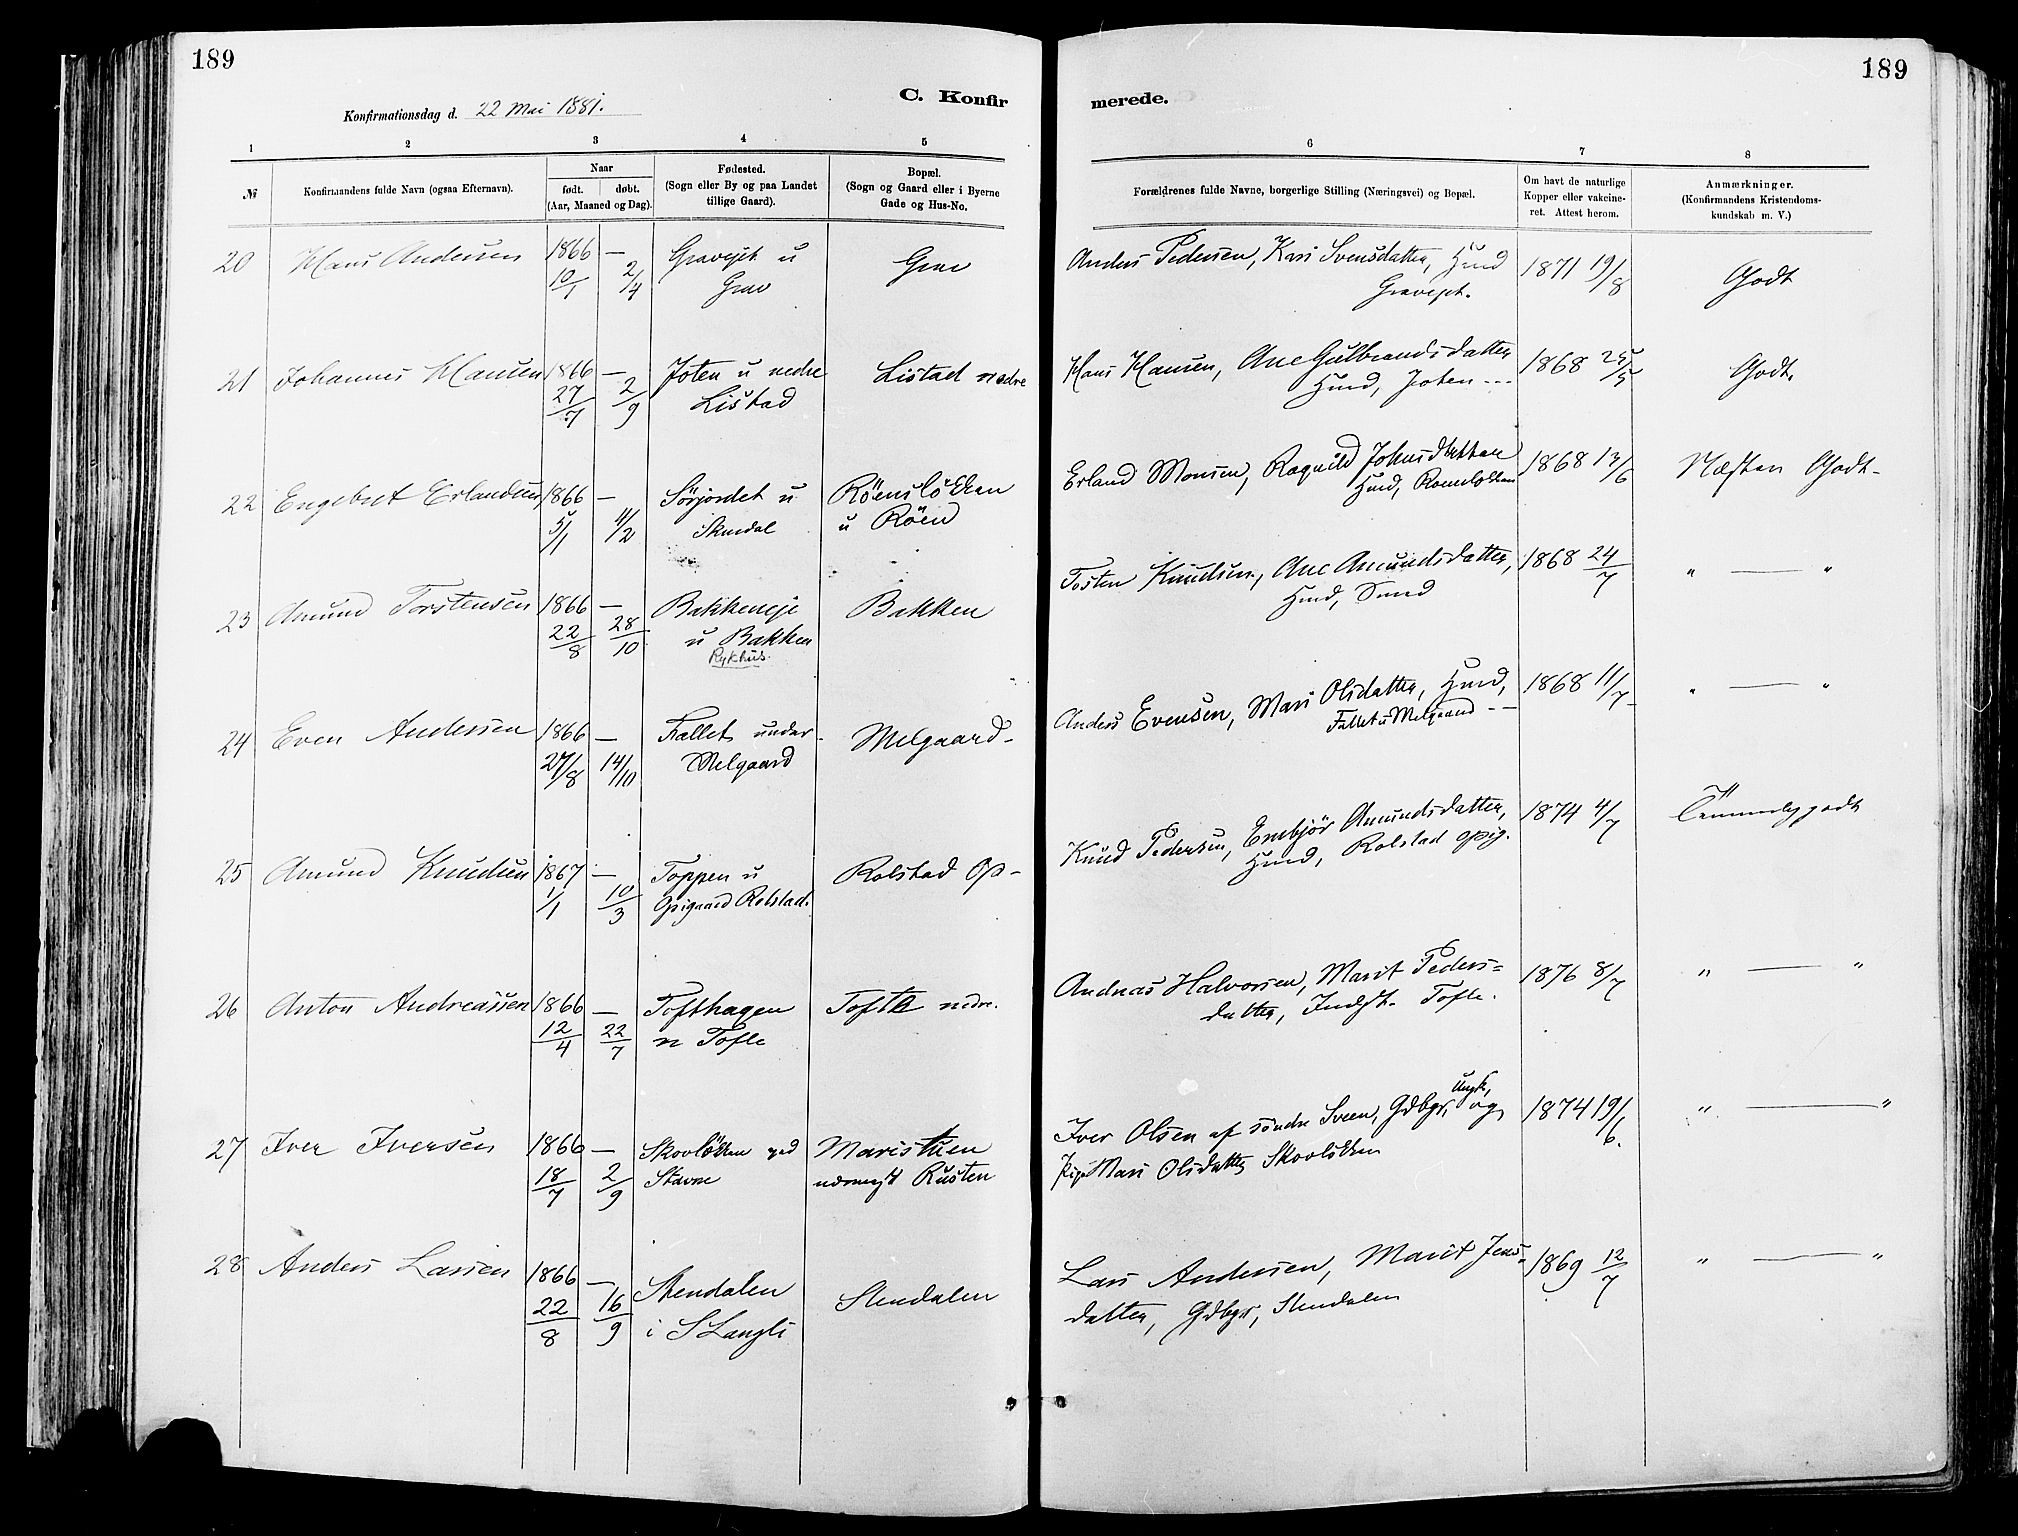 189
189
C. Konfir
merede.
Konfirmationsdag d. 22 Mai 1881.
1 2 3 4 5
6 7 8
№ Konfirmandens fulde Navn (ogsaa Efternavn). Naar født. døbt. (Aar, Maaned og Dag). Fødested. (Sogn eller By og paa Landet tillige Gaard). Bopæl. (Sogn og Gaard eller i Byerne Gade og Hus-No.
Forældrenes fulde Navne, borgerlige Stilling (Næringsvei) og Bopæl. Om havt de naturlige Kopper eller vakcineret. Attest herom. Anmærkninger. (Konfirmandens Kristendomskundskab m. V.)
20 Hans Andersen 1866 — Gravejet u Grav
10/1 2/4 Grav
Anders Pedersen, Kari Svensdatter, Husmd 1871 19/8 Godt
Gravejet.
21 Johannes Hansen 1866 — Joten u nedre Listad nedre
27/7 2/9 Listad
Hans Hansen, Ane Gulbrandsdatter 1868 25/5 Godt.
Husmd, Joten ---
22 Engebret Erlandsen 1866 — Sörjordet u Röenslökken
5/1 11/2 Skurdal u Röen
Erland Monsen, Ragnild Johnsdatter 1868 13/6 Næsten Godt-
Husmd, Roenslökken
23 Amund Torstensen 1866 — Bakkeneje Bakken
22/8 28/10 u Bakken
Rykhus.
Tosten Knudsen, Ane Amundsdatter, 1868 24/7 " — "
Husmd, Sund
24 Even Andersen 1866 — Fallet under Melgaard-
27/8 14/10 Melgaard
Anders Evensen, Mari Olsdatter, Husmd, 1868 11/7 " — "
Fallet u Melgaard --
25 Amund Knudsen 1867 — Toppen u Rolstad Op-
1/1 10/3 Opigaard Rolstad.
Knud Pedersen, Embjör Amundsdatter, 1874 4/7 Temmelig godt
Husmd, Rolstad opig.
26 Anton Andreassen 1866 — Tofthagen Tofte nedre.
12/4 22/7 n Tofte
Andreas Halvorsen, Marit Peders= 1876 8/7 " — "
datter, Indst. Tofte.
27 Iver Iversen 1866 — Skovlökken ved Maristuen
18/7 2/9 Stavne Rusten
Ungk,
Iver Olsen af söndre Sveen, Gdbgr, og 1874 19/6. " — "
Pige Mari Olsdatter Skovlökken
28 Anders Larsen 1866 — Stendalen Stendalen
22/8 16/9 i S Langli
Lars Andersen, Marit Jens= 1869 12/7 " — "
datter, Gdbgr, Stendalen